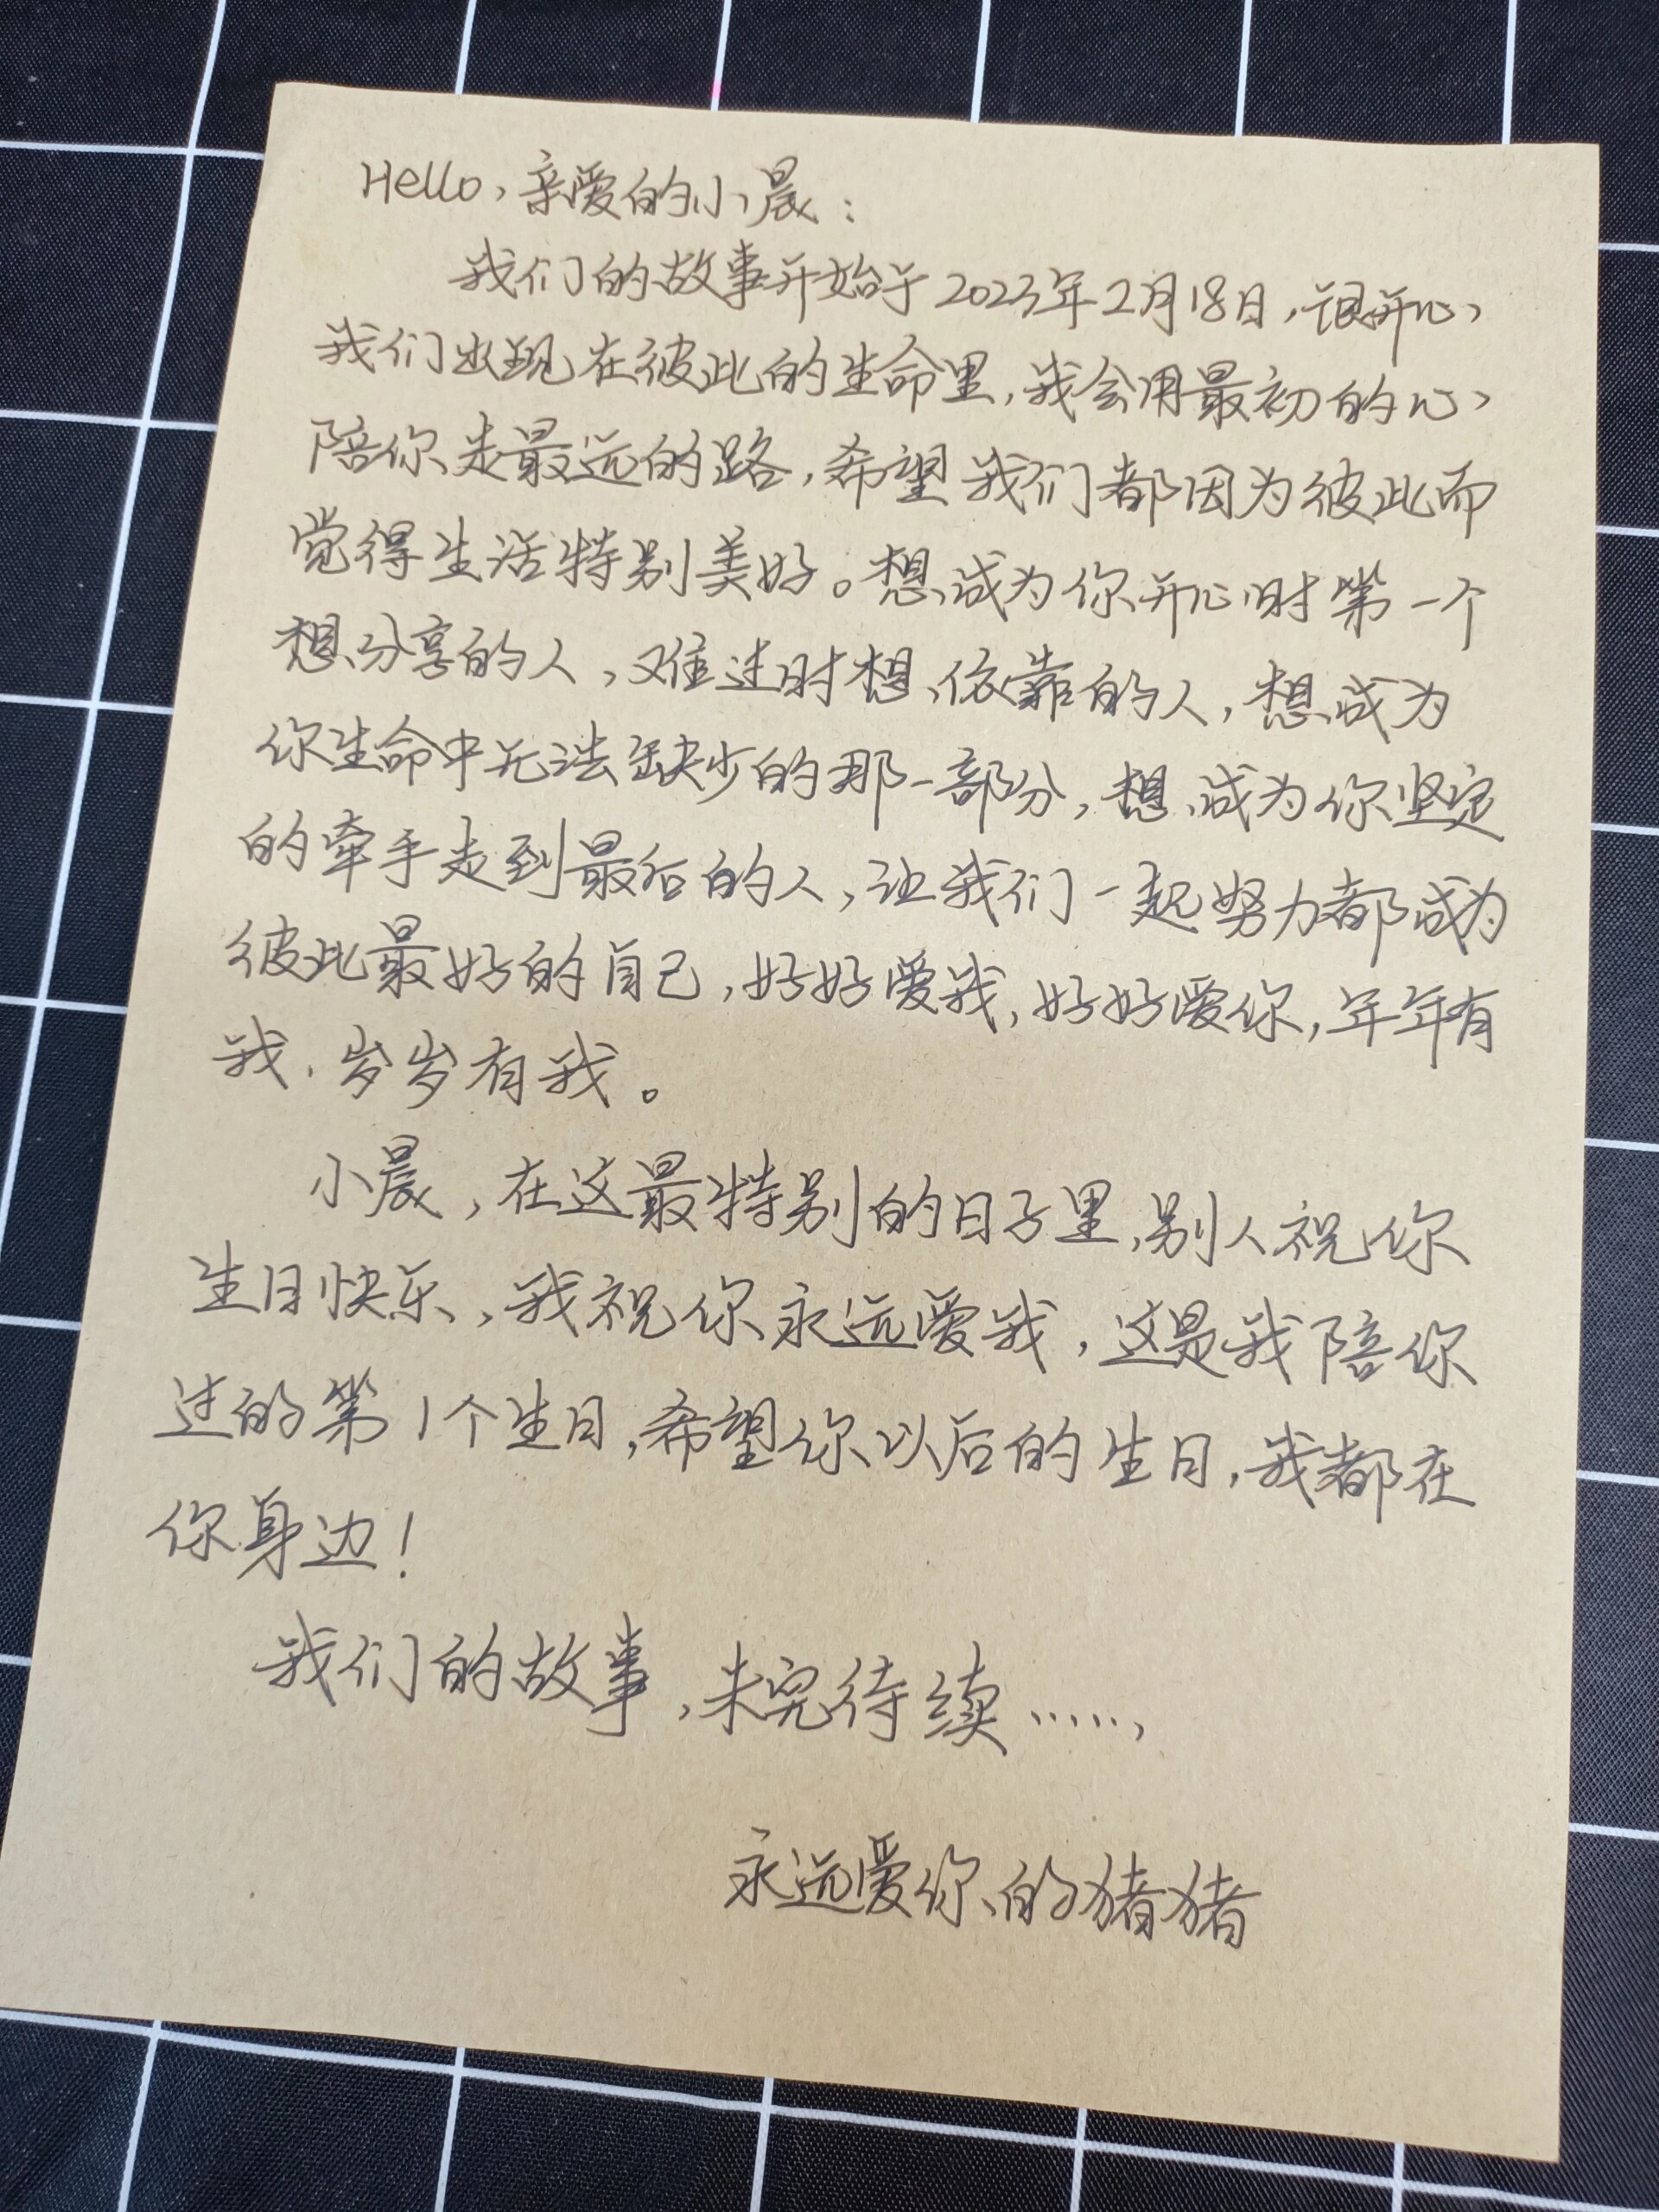 Hello,亲爱的小晨:
我们的故事开始于2023年2月18日,很开心,
我们出现在彼此的生命里,我会用最初的心,
陪你走最远的路,希望我们都因为彼此而
觉得生活特别美好。想成为你开心时第一个
想分享的人,难过时想依靠的人,想成为
你生命中无法缺少的那一部分,想成为你坚定
的牵手走到最后的人,让我们一起努力都成为
彼此最好的自己,好好爱我,好好爱你,年年有
我,岁岁有我。
小晨,在这最特别的日子里,别人祝你
生日快乐,我祝你永远爱我,这是我陪你
过的第1个生日,希望你以后的生日,我都在
你身边!
我们的故事,未完待续……
永远爱你的猪猪